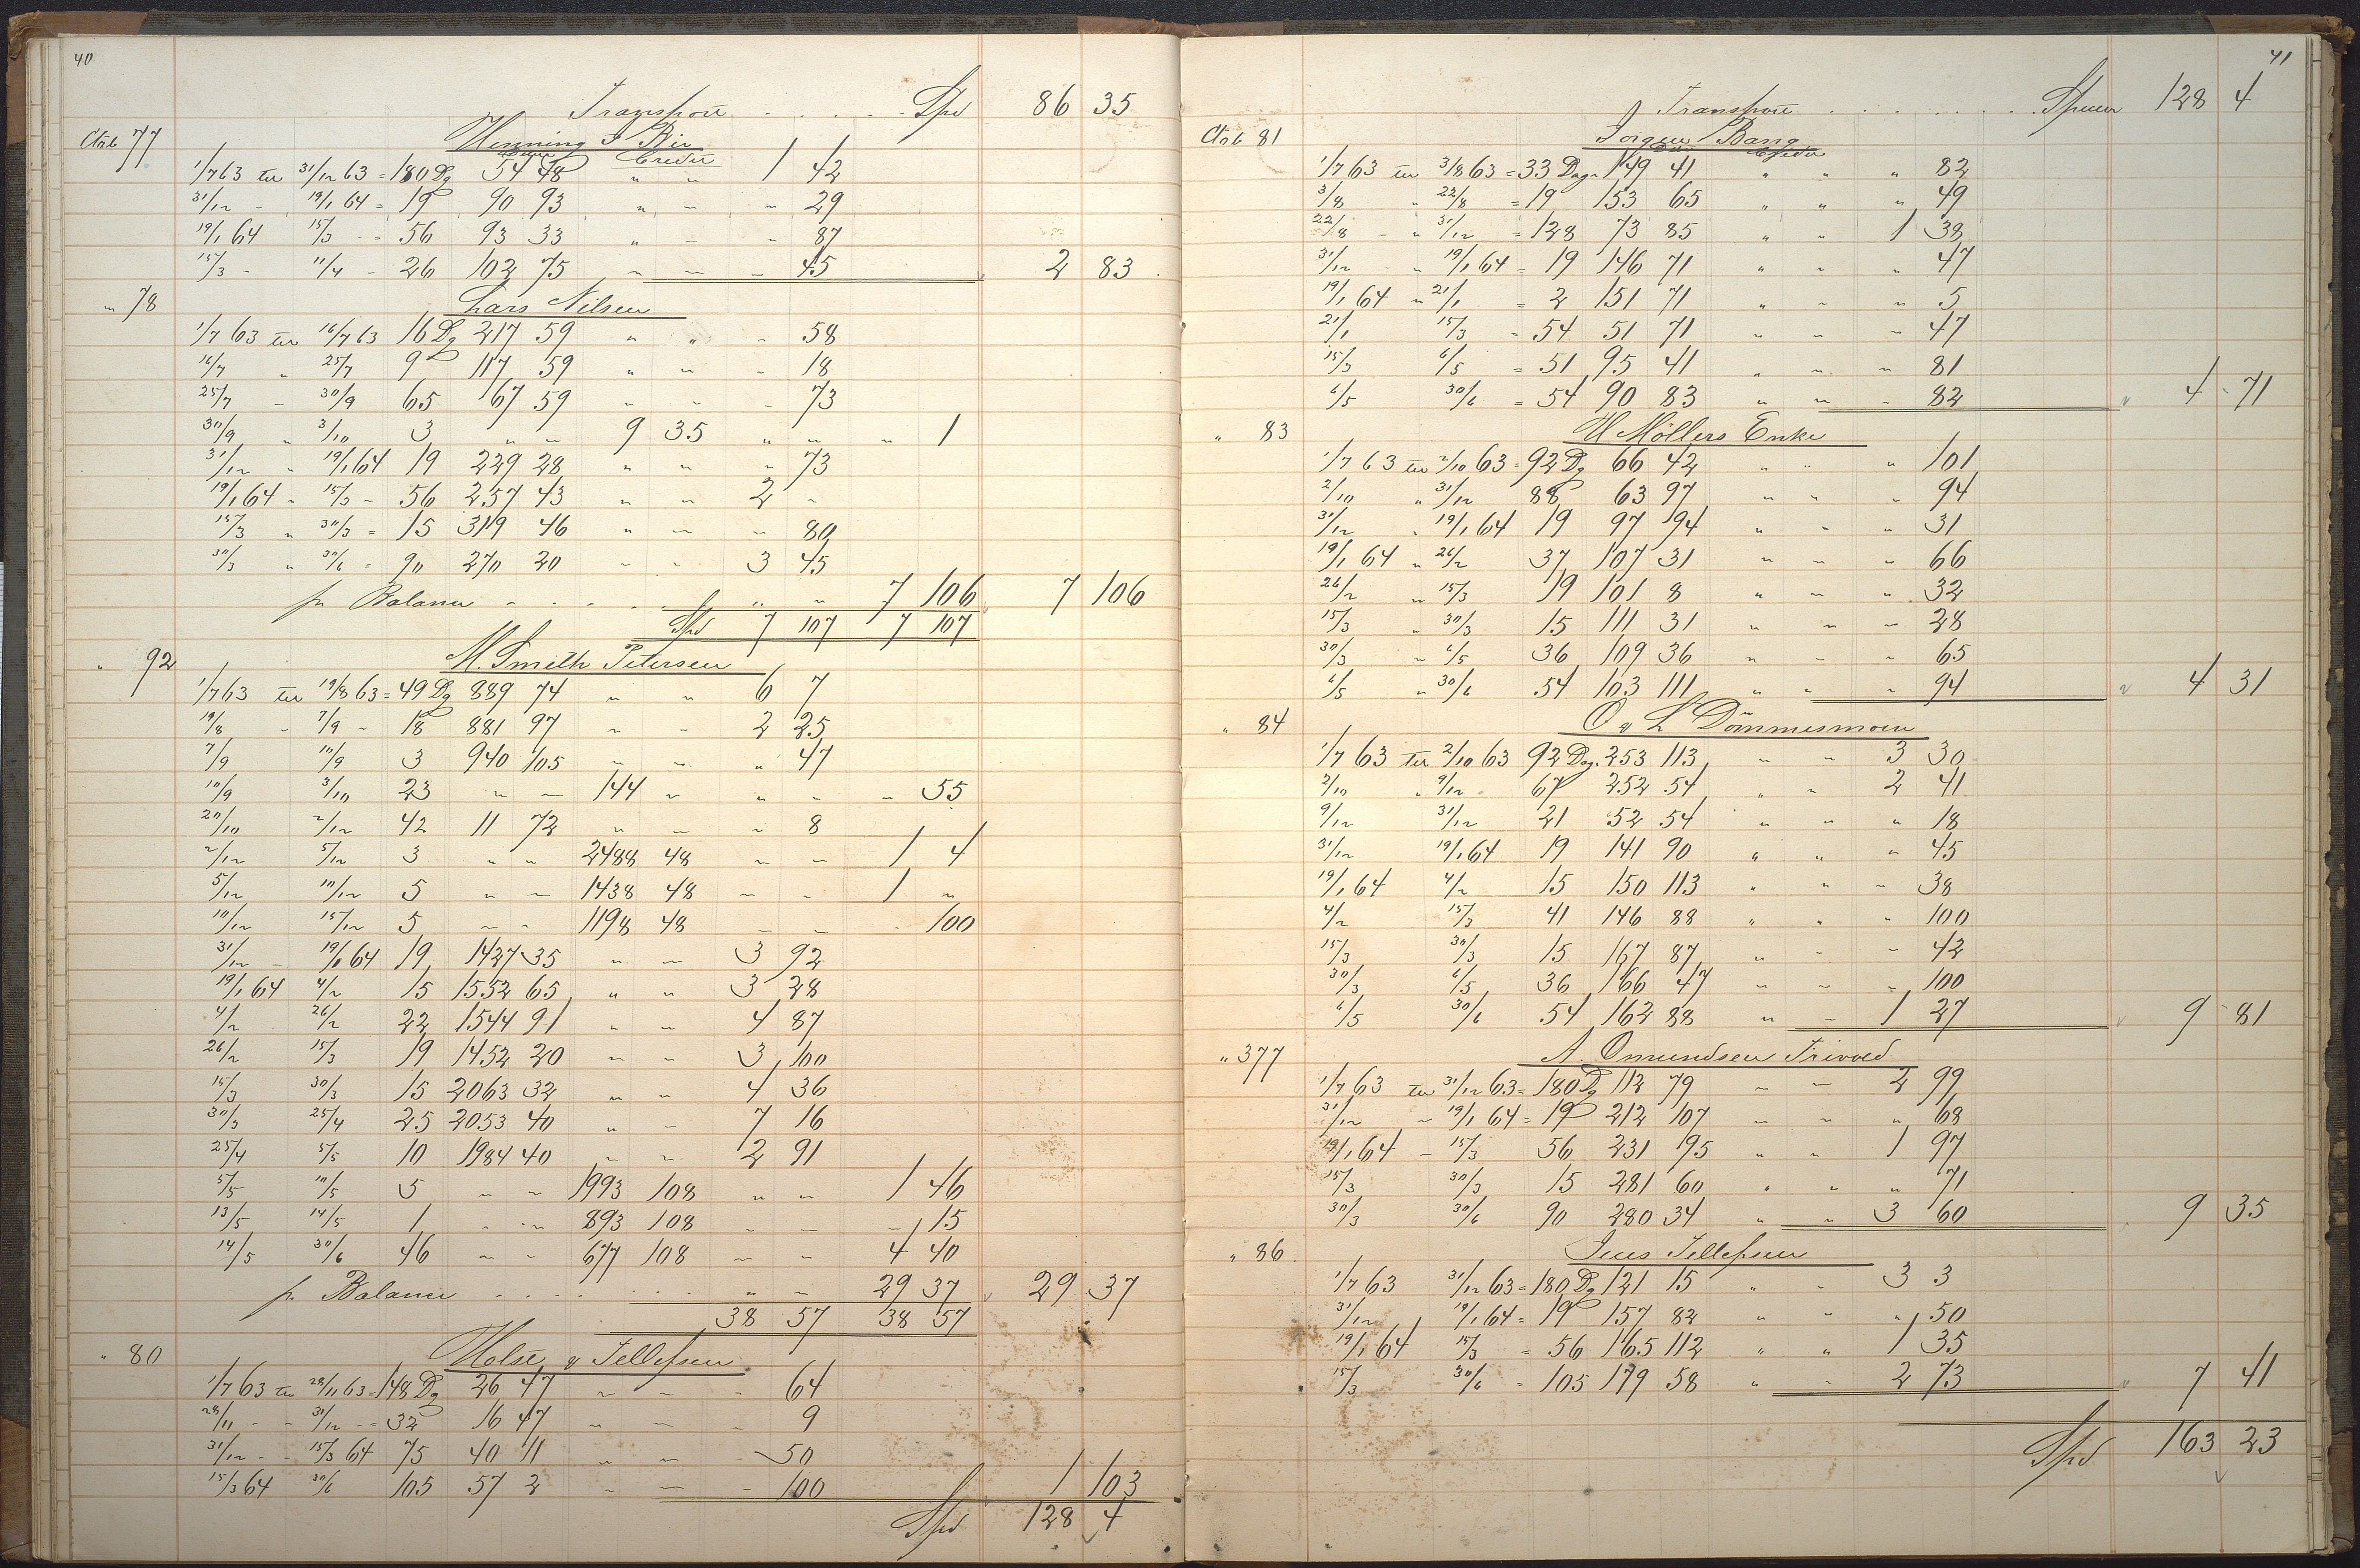 40
Transport . . . . . Spd 86 35
Ctrb 77 Henning J Bie
Debet Credit
1/7 63 ter 31/12 63 = 180 Dg 54 48 " " 1 42
31/12 - 19/1 64 = 19 90 93 " - " 29
19/1 64 15/3 - = 56 93 33 " - " 87
15/3 - 11/4 - 26 102 75 ~ - - 45 2 83
" 78 Lars Nilsen
1/7 63 ter 16/7 63 16 Dg 217 59 " " - 58
16/7 " 25/7 9 117 59 " - - 18
25/7 - 30/9 65 167 59 - - - 73
30/9 " 3/10 3 " - 9 35 " " " 1
31/12 " 19/1 64 19 229 28 " " " 73
19/1 64 - 15/3 - 56 257 43 " - 2 -
15/3 " 30/3 = 15 319 46 " - - 80
30/3 " 30/6 = 90 270 20 - - 3 45
pr Balance - . . . . " - 7 106 7 106
Spd 7 107 7 107
" 92 M. Smith Petersen
1/7 63 ter 19/8 63 = 49 Dg 889 74 " " 6 7
19/8 - 7/9 - 18 881 97 ~ - 2 25
7/9 10/9 3 940 105 - - " 47
10/9 3/10 23 " - 144 " " - - 55
20/10 2/12 42 11 72 " - - 8
2/12 5/12 3 " " 2488 48 - - 1 4
5/12 10/12 5 " - 1438 48 - - 1 "
10/12 15/12 5 - - 1198 48 - - - 100
31/12 - 19/1 64 19 1427 35 " - 3 92
19/1 64 4/2 15 1552 65 " " 3 28
4/2 26/2 22 1544 91 " - 4 87
26/2 15/3 19 1452 20 - - 3 100
15/3 30/3 15 2063 32 " " 4 36
30/3 25/4 25 2053 40 " - 7 16
25/4 5/5 10 1984 40 - - 2 91
5/5 10/5 5 - - 1993 108 " - 1 46
13/5 14/5 1 - - 893 108 - - - 15
14/5 30/6 46 - - 677 108 - - 4 40
pr. Balance . . . . . . " - 29 37 29 37
38 57 38 57
" 80 Holst & Tellefsen
1/7 63 ter 28/11 63 = 148 Dg 26 47 ~ - - 64
28/11 - - 31/12 - = 32 16 47 ~ - - 9
31/12 - - 15/3 64 75 40 11 " " - 50
15/3 64 30/6 105 57 2 - - - 100 1 103
Spd 128 4
41
Transport . . . . . . . Spncer 128 4
Ctrb 81 Jörgen Bang
Debet Credit
1/7 63 ter 3/8 63 = 33 Dage 149 41 " " " 82
3/8 " 22/8 = 19 153 65 " " " 49
22/8 - " 31/12 = 128 73 85 " " 1 38
31/12 - " 19/1 64 = 19 146 71 " " " 47
19/1 64 " 21/1 = 2 151 71 " - " 5
21/1 15/3 - 54 51 71 - - - 47
15/3 6/5 = 51 95 41 " - - 81
6/5 30/6 = 54 90 83 " " - 82 4 - 71
" 83 H Möllers Enke
1/7 63 ter 2/10 63 = 92 Dg 66 42 " " " 101
2/10 " 31/12 88 63 97 - " - 94
31/12 " 19/1 64 19 97 94 " - " 31
19/1 64 " 26/2 37 107 31 " - " 66
26/2 " 15/3 19 101 8 " - " 32
15/3 " 30/3 15 111 31 " " - 28
30/3 - 6/5 36 109 36 " - - 65
6/5 " 30/6 54 103 111 " " " 94 4 31
" 84 O & L Dömmesmoen
1/7 63 ter 2/10 63 92 Dag. 253 113 - - 3 30
2/10 " 9/12 67 252 54 " " 2 41
9/12 31/12 21 52 54 " " " 18
31/12 19/1 64 19 141 90 " " - 45
19/1 64 4/2 15 150 113 " " - 38
4/2 15/3 41 146 88 " - " 100
15/3 30/3 15 167 87 " - - 42
30/3 6/5 36 166 47 - - - 100
6/5 30/6 54 162 88 " - 1 27 9 - 81
" 377 A. Omundsen Trivold
1/7 63 ter 31/12 63 = 180 Dg 112 79 - - 2 99
31/12 - 19/1 64 = 19 212 107 - - " 68
19/1 64 - 15/3 56 231 95 " " 1 97
15/3 30/3 15 281 60 " " " 71
30/3 30/6 90 280 34 " " 3 60 9 35
" 86 Jens Tellefsen
1/7 63 31/12 63 = 180 Dg 121 15 " - 3 3
31/12 19/1 64 = 19 157 82 " " " 50
19/1 64 15/3 = 56 165 112 " " 1 35
15/3 30/6 - 105 179 58 " - 2 73 7 41
Spd 163 23